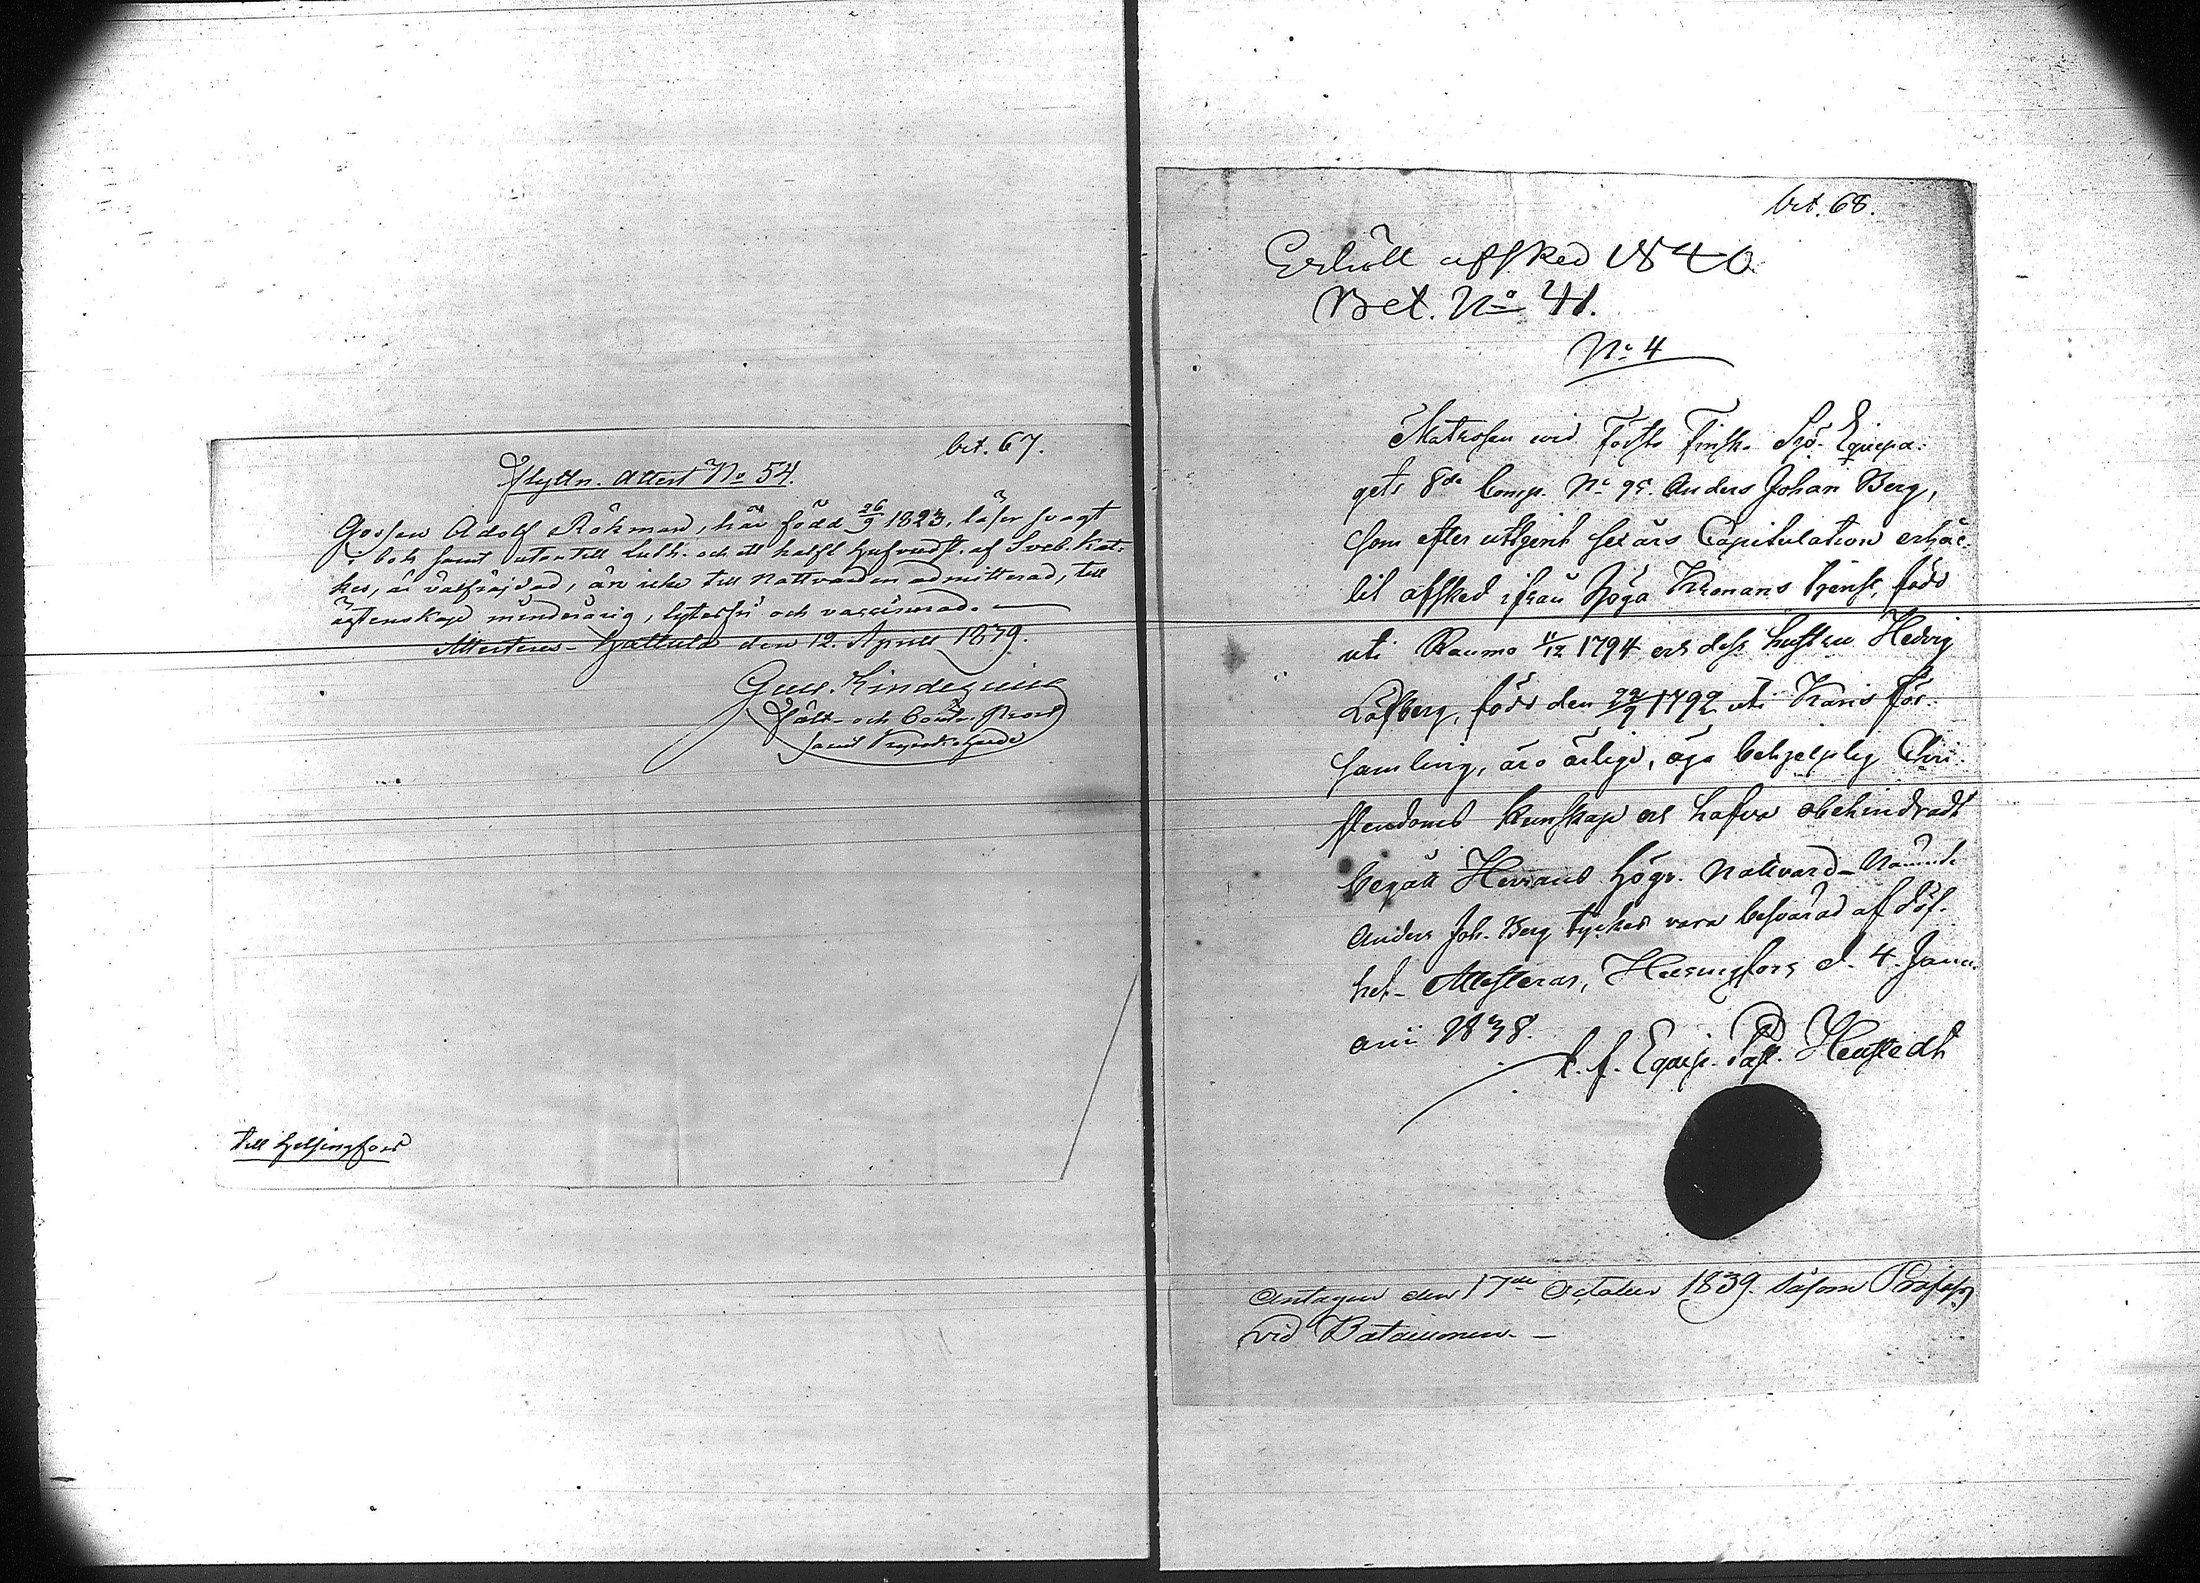 bet. 67.
Flyttn. Attest No 54.
Gossen Adolf Rökman, här född 26/9 1823, läser svagt
i bok samt utantill Luth. och ett halft hufvudst. af Sveb. Kat.
kes, är välfräjdad, än icke till Nattvarden admitterad, till
ägtenskap minderårig, lytesfri och vaccinerad.
Attesteras Hattula den 12. April 1839.
Gust.
Fält- och Contr. Prost
samt Kyrkoherde
till Helsingfors
bet. 68.
Erhöll afsked 1840
Bet. No 41.
No 4
Matrosen vid Första Finska Sjö-Equipa-
gets 8de Comp. No 95. Anders Johan Berg,
som efter uttjent sex års Capitulation erhål-
lit afsked ifrån Höga Kronans tjenst, född
uti Raumo 4/12 1794 och dess hustru Hedvig
Löfberg, född den 22/9 1792 uti Karis för-
samling, äro ärliga, äga behjelplig Chri-
stendoms kunskap och hafva obehindradt
begått Herrans Högv. Nattvard - Nämnde
Anders Joh. Berg tyckes vara besvärad af döf-
het - Attesteras, Helsingfors d. 4. Janu-
arii 1838.
t. f. Equip. Past.
Antagen den 17de October 1839. såsom Profoss
vid Bataillonen. -